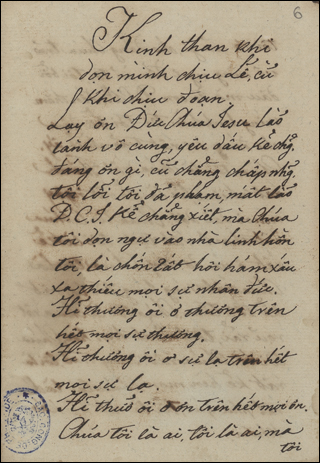 6
Kinh than khi
dọn mình chịu Lễ, củ
khi chịu đoạn.
Lạy ơn Đức Chúa Jesu lào
lành vô cùng, yêu dấu kẻ chg̉
đáng ơn gì, củ chẳng chấp nhg̉
tội lỗi tôi đã phạm, mất lào
D.C.J. kể chẳng xiết, mà Chúa
tôi dọn ngự vào nhà linh hồn
tôi, là chốn rất hôi hám xấu
xa thiếu mọi sự nhân đức.
Hỉ thương ôi ở thương trên
hết mọi sự thương.
Hỉ thương ôi ở sự lạ trên hết
mọi sự lạ.
Hỉ thuở ôi ở ơn trên hết mọi ơn.
Chúa tôi là ai, tôi là ai, mà
tôi